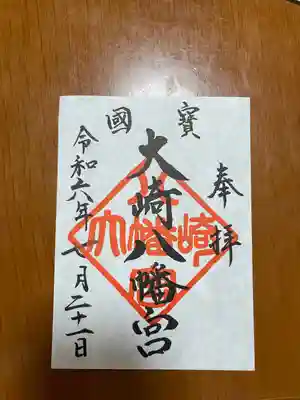 奉拝
國寶
大崎八幡宮
令和六年七月二十一日
大崎八幡宮